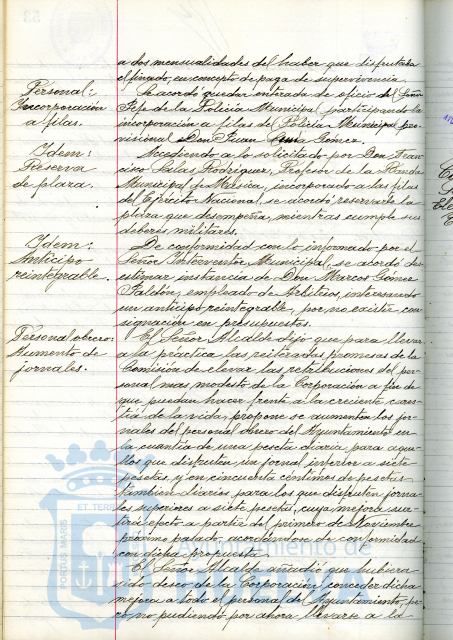 a dos mensualidades del haber que disfrutaba
el finado, en concepto de paga de supervivencia.
Personal:
Incorporación
a filas.
Se acordó quedar enterada de oficio del Señor
Jefe de la Policía Municipal, participando la
incorporación a filas del Policía Municipal pro-
visional Don Juan Gómez.
Idem:
Reserva
de plaza.
Accediendo a lo solicitado por Don Fran-
cisco Salas Rodríguez, Profesor de la Banda
Municipal de Música, incorporado a las filas
del Ejército Nacional, se acordó reservarle la
plaza que desempeña, mientras cumple sus
deberes militares.
Idem:
Anticipo
reintegrable.
De conformidad con lo informado por el
Señor Interventor Municipal, se acordó des-
estimar instancia de Don Marcos Gómez
Faldón, empleado de Arbitrios, interesando
un anticipo reintegrable, por no existir con-
signación en presupuestos.
Personal obrero:
Aumento de
jornales.
El Señor Alcalde dijo que para llevar
a la práctica las reiteradas promesas de la
Comisión de elevar las retribuciones del per-
sonal mas modesto de la Corporación a fin de
que puedan hacer frente a la creciente cares-
tía de la vida, propone se aumenten los jor-
nales del personal obrero del Ayuntamiento en
la cuantía de una peseta diaria, para aque-
llos que disfruten un jornal inferior a siete
pesetas, y en cincuenta céntimos de pesetas
tambien diarios para los que disfruten jorna-
les superiores a siete pesetas, cuya mejora sur-
tirá efecto a partir del primero de Noviembre
próximo pasado, acordándose de conformidad
con dicha propuesta.
El Señor Alcalde añadió que hubiera
sido deseo de la Corporación conceder dicha
mejora a todo el personal del Ayuntamiento, pe-
ro no pudiendo por ahora llevarse a la
PORTUS MARIS ET TERRAE
Ayuntamiento de